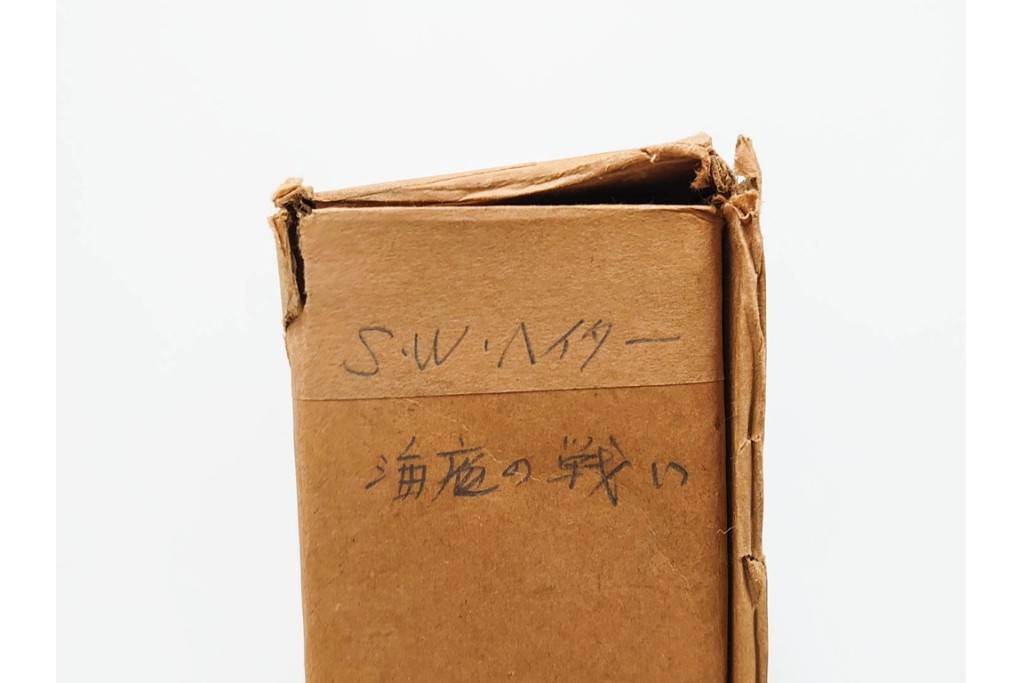 S·W·ヘイター
海底の戦い